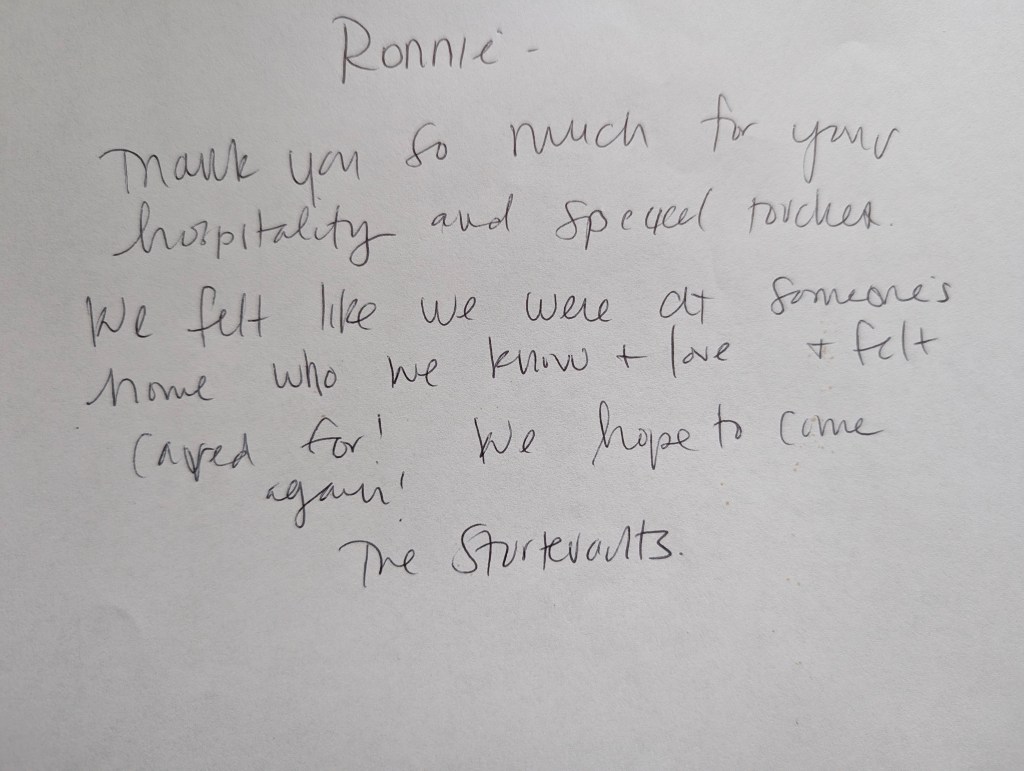 Ronnie -
Thank you so much for your
hospitality and special touches.
We felt like we were at someone's
home who we know + love + felt
cared for! We hope to come
again!
The Sturtevants.